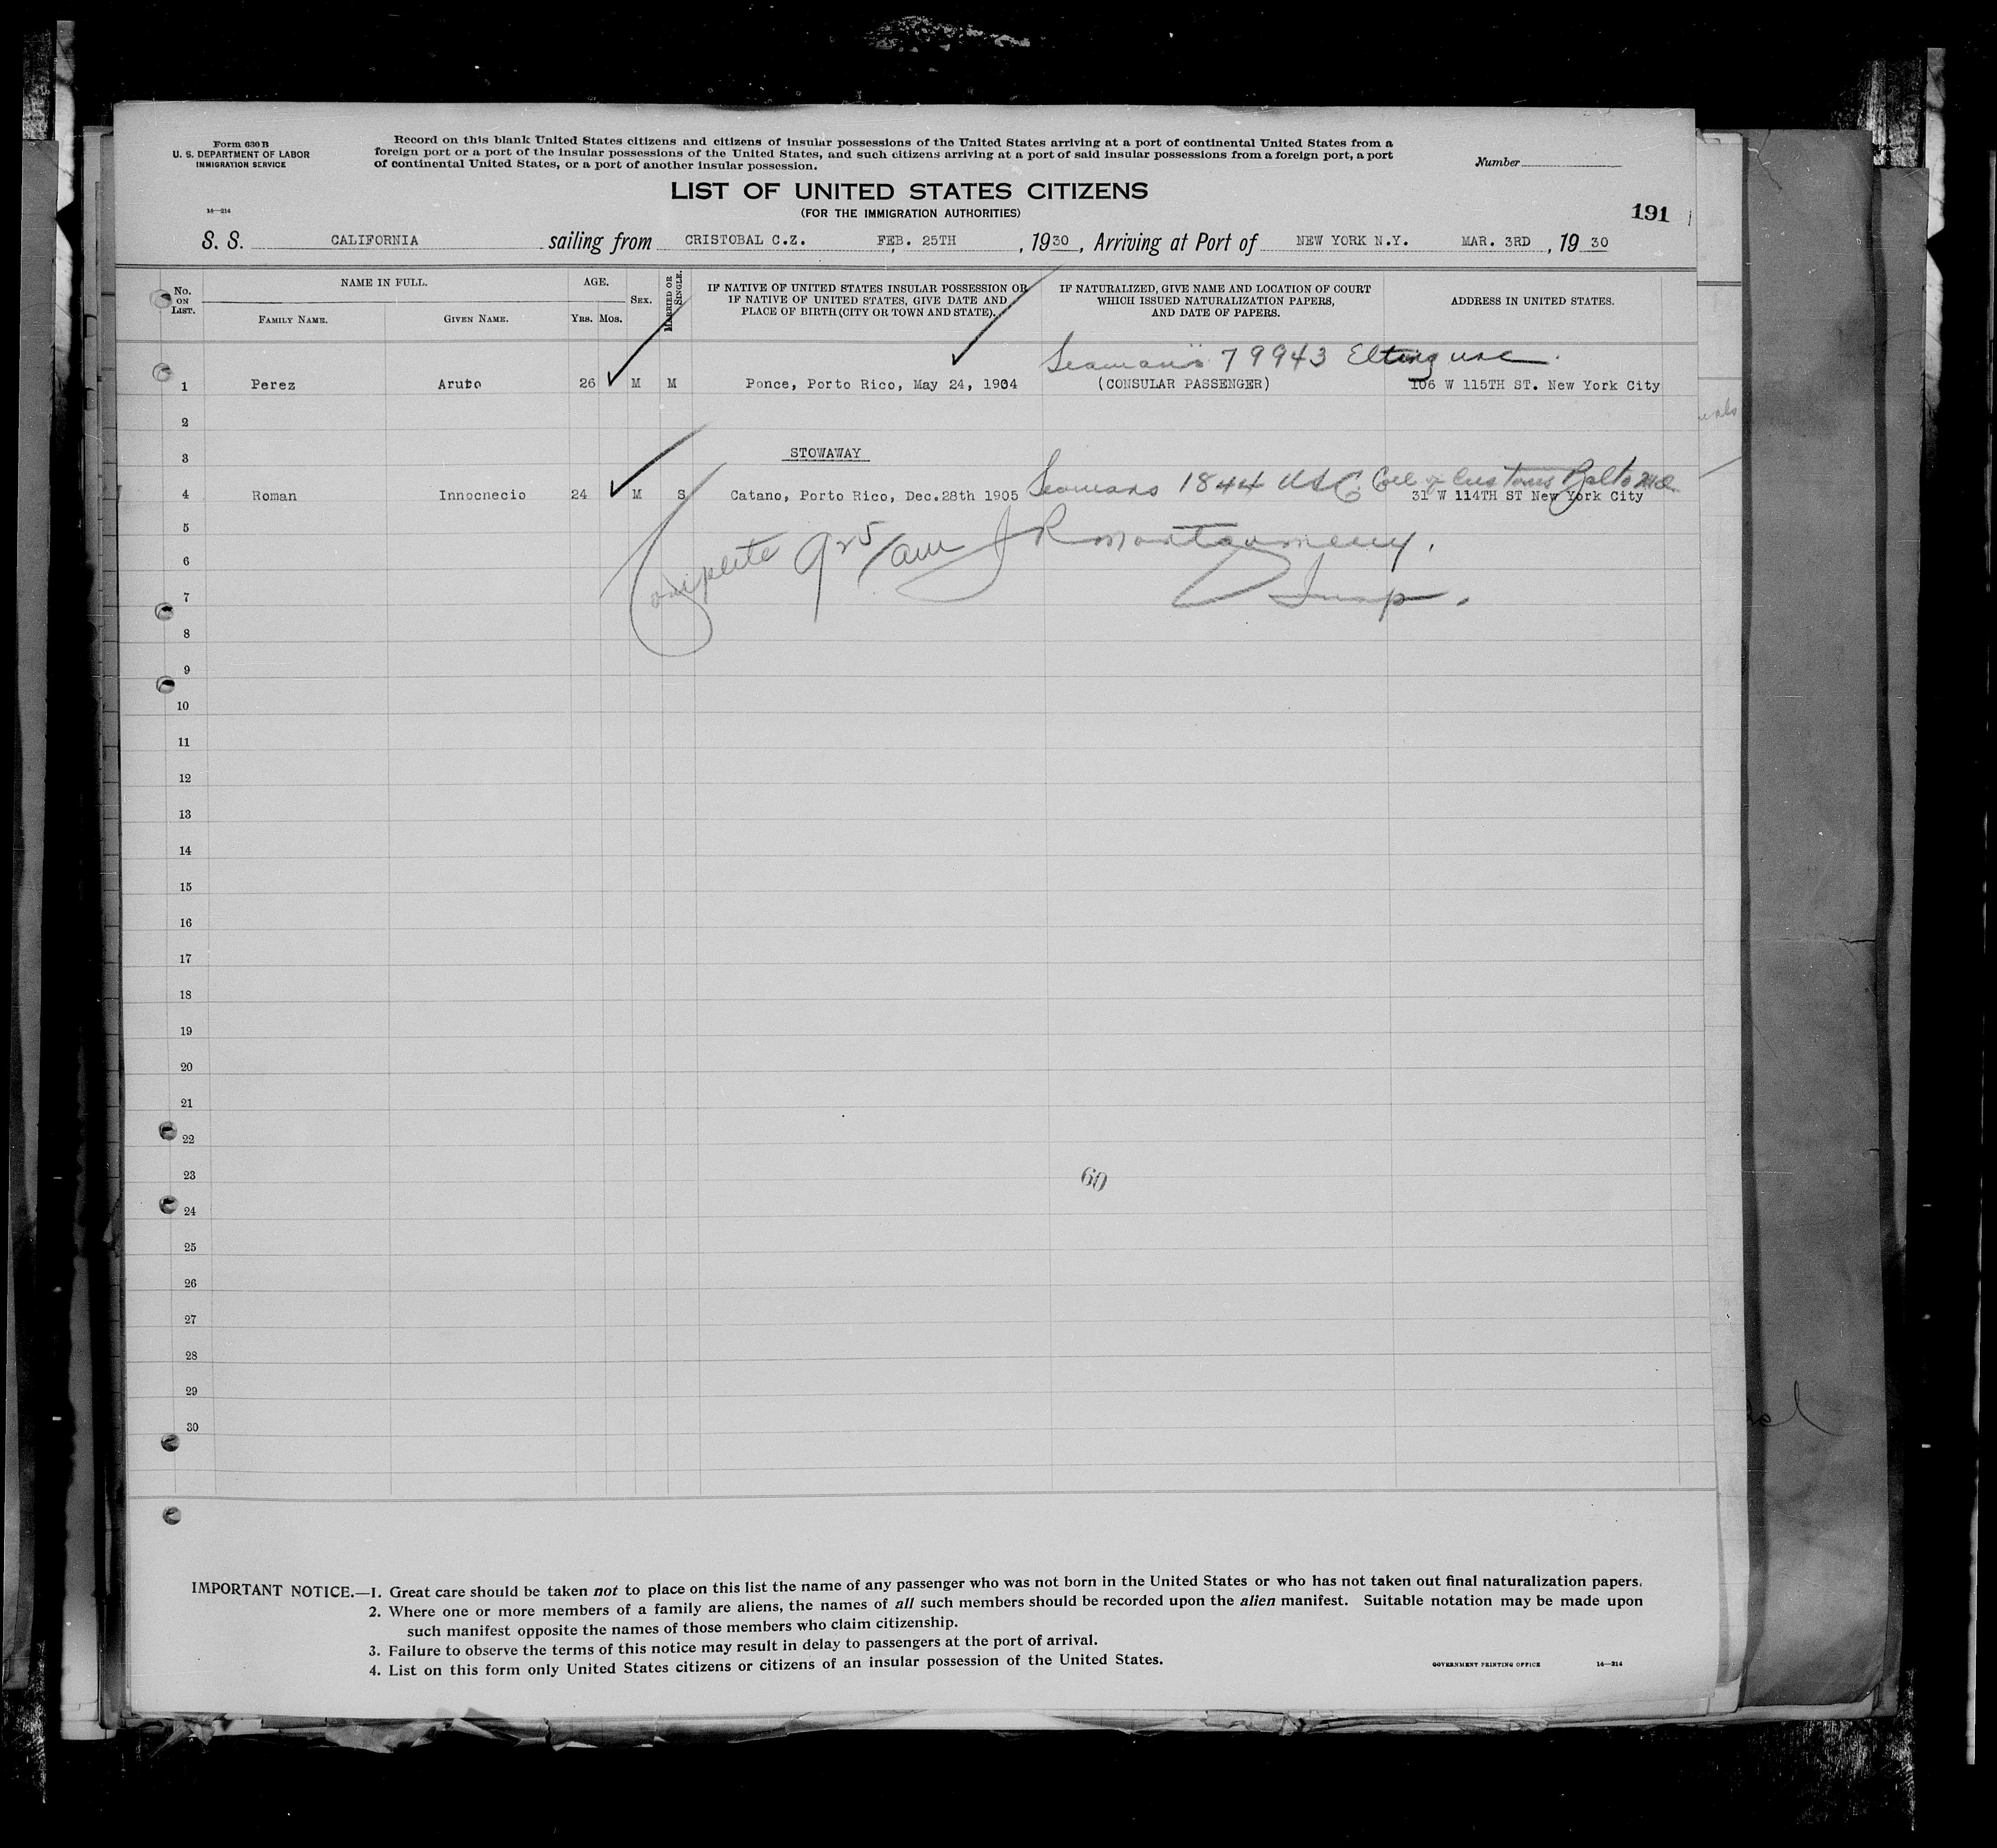 Form 630 B
U. S. DEPARTMENT OF LABOR
IMMIGRATION SERVICE
Record on this blank United States citizens and citizens of insular possessions of the United States arriving at a port of continental United States from a
foreign port or a port of the insular possessions of the United States, and such citizens arriving at a port of said insular possessions from a foreign port, a port
of continental United States, or a port of another insular possession.
Number
LIST OF UNITED STATES CITIZENS
(FOR THE IMMIGRATION AUTHORITIES)
14—214
191
S. S. CALIFORNIA sailing from CRISTOBAL C.Z. FEB. 25TH, 1930, Arriving at Port of NEW YORK N.Y. MAR. 3RD, 1930
No. ON LIST.
NAME IN FULL.
FAMILY NAME.
GIVEN NAME.
AGE.
YRS. MOS.
SEX.
MARRIED OR SINGLE.
IF NATIVE OF UNITED STATES INSULAR POSSESSION OR
IF NATIVE OF UNITED STATES, GIVE DATE AND
PLACE OF BIRTH (CITY OR TOWN AND STATE).
IF NATURALIZED, GIVE NAME AND LOCATION OF COURT
WHICH ISSUED NATURALIZATION PAPERS,
AND DATE OF PAPERS.
ADDRESS IN UNITED STATES.
Seaman's 79943 Elting
1 Perez Aruto 26 M M Ponce, Porto Rico, May 24, 1904 (CONSULAR PASSENGER) 106 W 115TH ST. New York City
2
3 STOWAWAY
Seamans 1844 Customs Balto Md
4 Roman Innocnecio 24 M S Catano, Porto Rico, Dec.28th 1905 31 W 114TH ST New York City
5
Complete 9 25/am J R Montgomery.
6
7 Insp.
8
9
10
11
12
13
14
15
16
17
18
19
20
21
22
23
60
24
25
26
27
28
29
30
IMPORTANT NOTICE.—1. Great care should be taken not to place on this list the name of any passenger who was not born in the United States or who has not taken out final naturalization papers.
2. Where one or more members of a family are aliens, the names of all such members should be recorded upon the alien manifest. Suitable notation may be made upon
such manifest opposite the names of those members who claim citizenship.
3. Failure to observe the terms of this notice may result in delay to passengers at the port of arrival.
4. List on this form only United States citizens or citizens of an insular possession of the United States.
GOVERNMENT PRINTING OFFICE 14—214